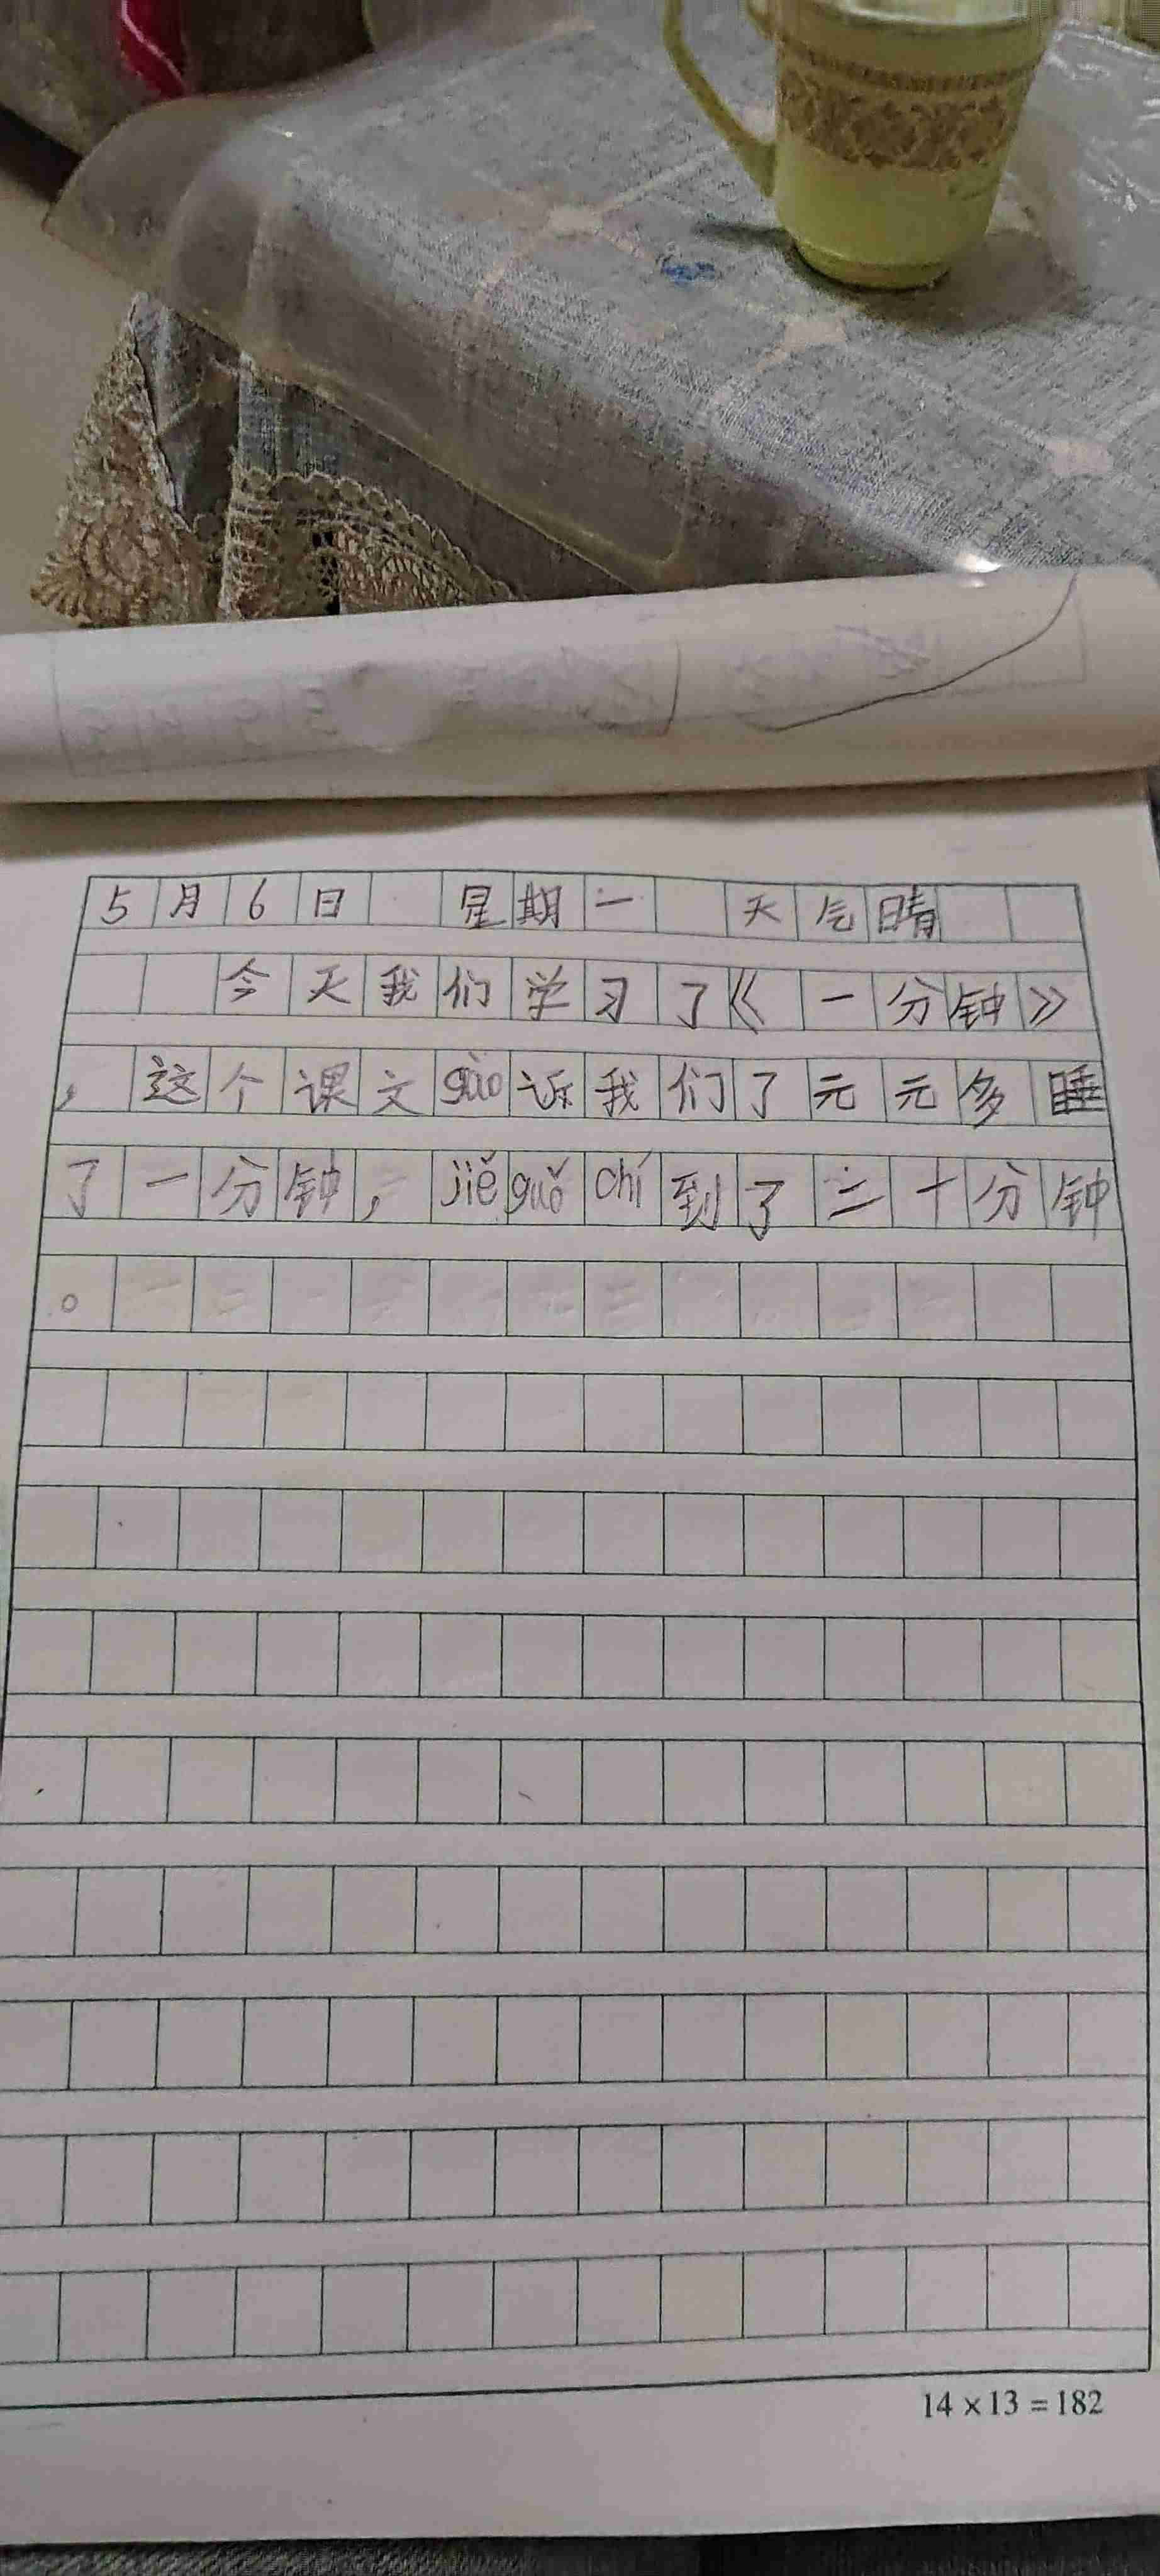 5月6日 星期一 天气晴
今天我们学习了《一分钟》
，这个课文gào诉我们了元元多睡
了一分钟，jiěguǒ chí到了二十分钟
。
14×13=182